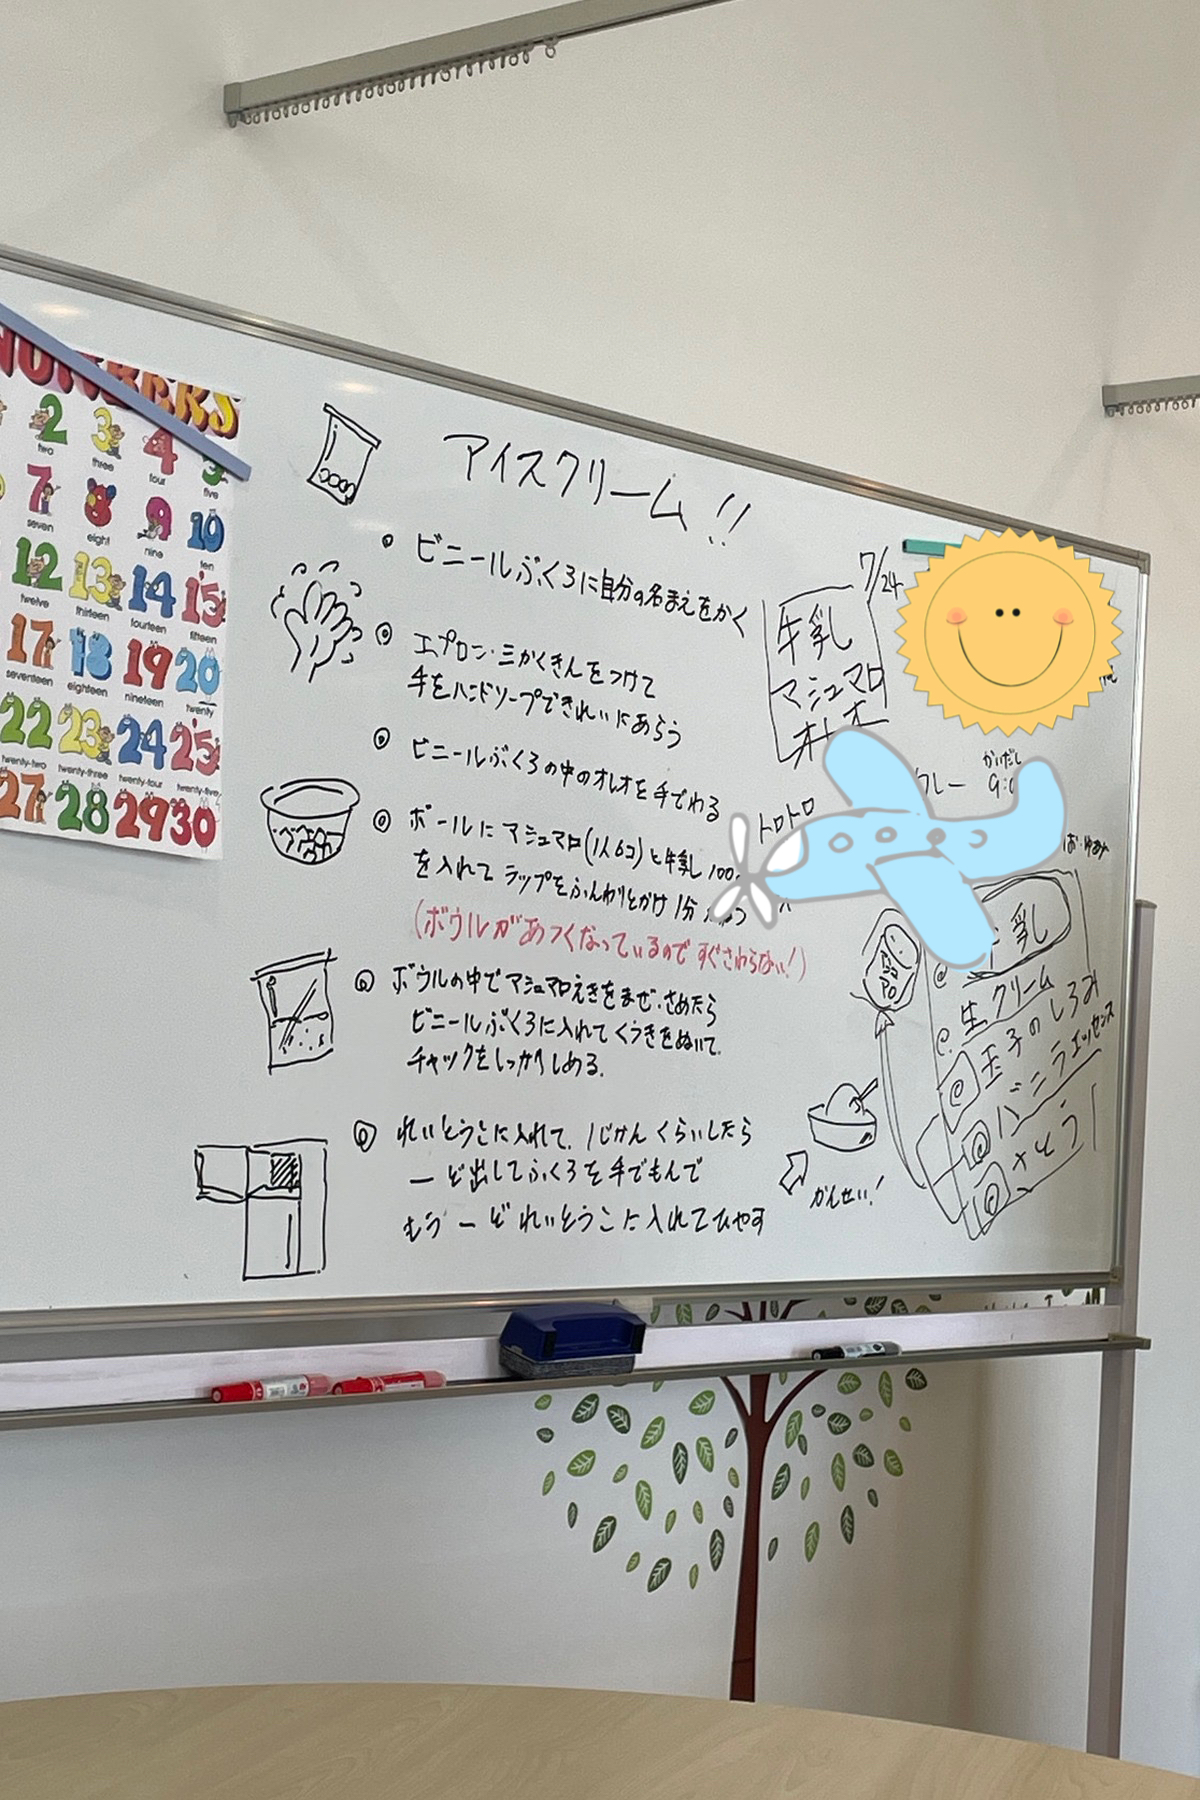 NUMBERS
2 3 4 5
two three four five
7 8 9 10
seven eight nine ten
12 13 14 15
twelve thirteen fourteen fifteen
17 18 19 20
seventeen eighteen nineteen twenty
22 23 24 25
twenty-two twenty-three twenty-four twenty-five
27 28 29 30
アイスクリーム!!
ビニールぶくろに自分の名まえをかく
エプロン・三かくきんをつけて
手をハンドソープできれいにあらう
ビニールぶくろの中のオレオを手でわる
ボールにマシュマロ(1人6コ)と牛乳100
を入れてラップをふんわりとかけ1分
(ボウルがあつくなっているのですぐさわらない!)
ボウルの中でマシュマロえきをまぜ、さめたら
ビニールぶくろに入れてくうきをぬいて
チャックをしっかりしめる。
れいとうこに入れて、1じかんくらいしたら
一ど出してふくろを手でもんで
もう一どれいとうこに入れてひやす
7/24
牛乳
マシュマロ
オレオ
かいだし
トロトロ
乳
生クリーム
玉子のしろみ
バニラエッセンス
さとう
かんせい!